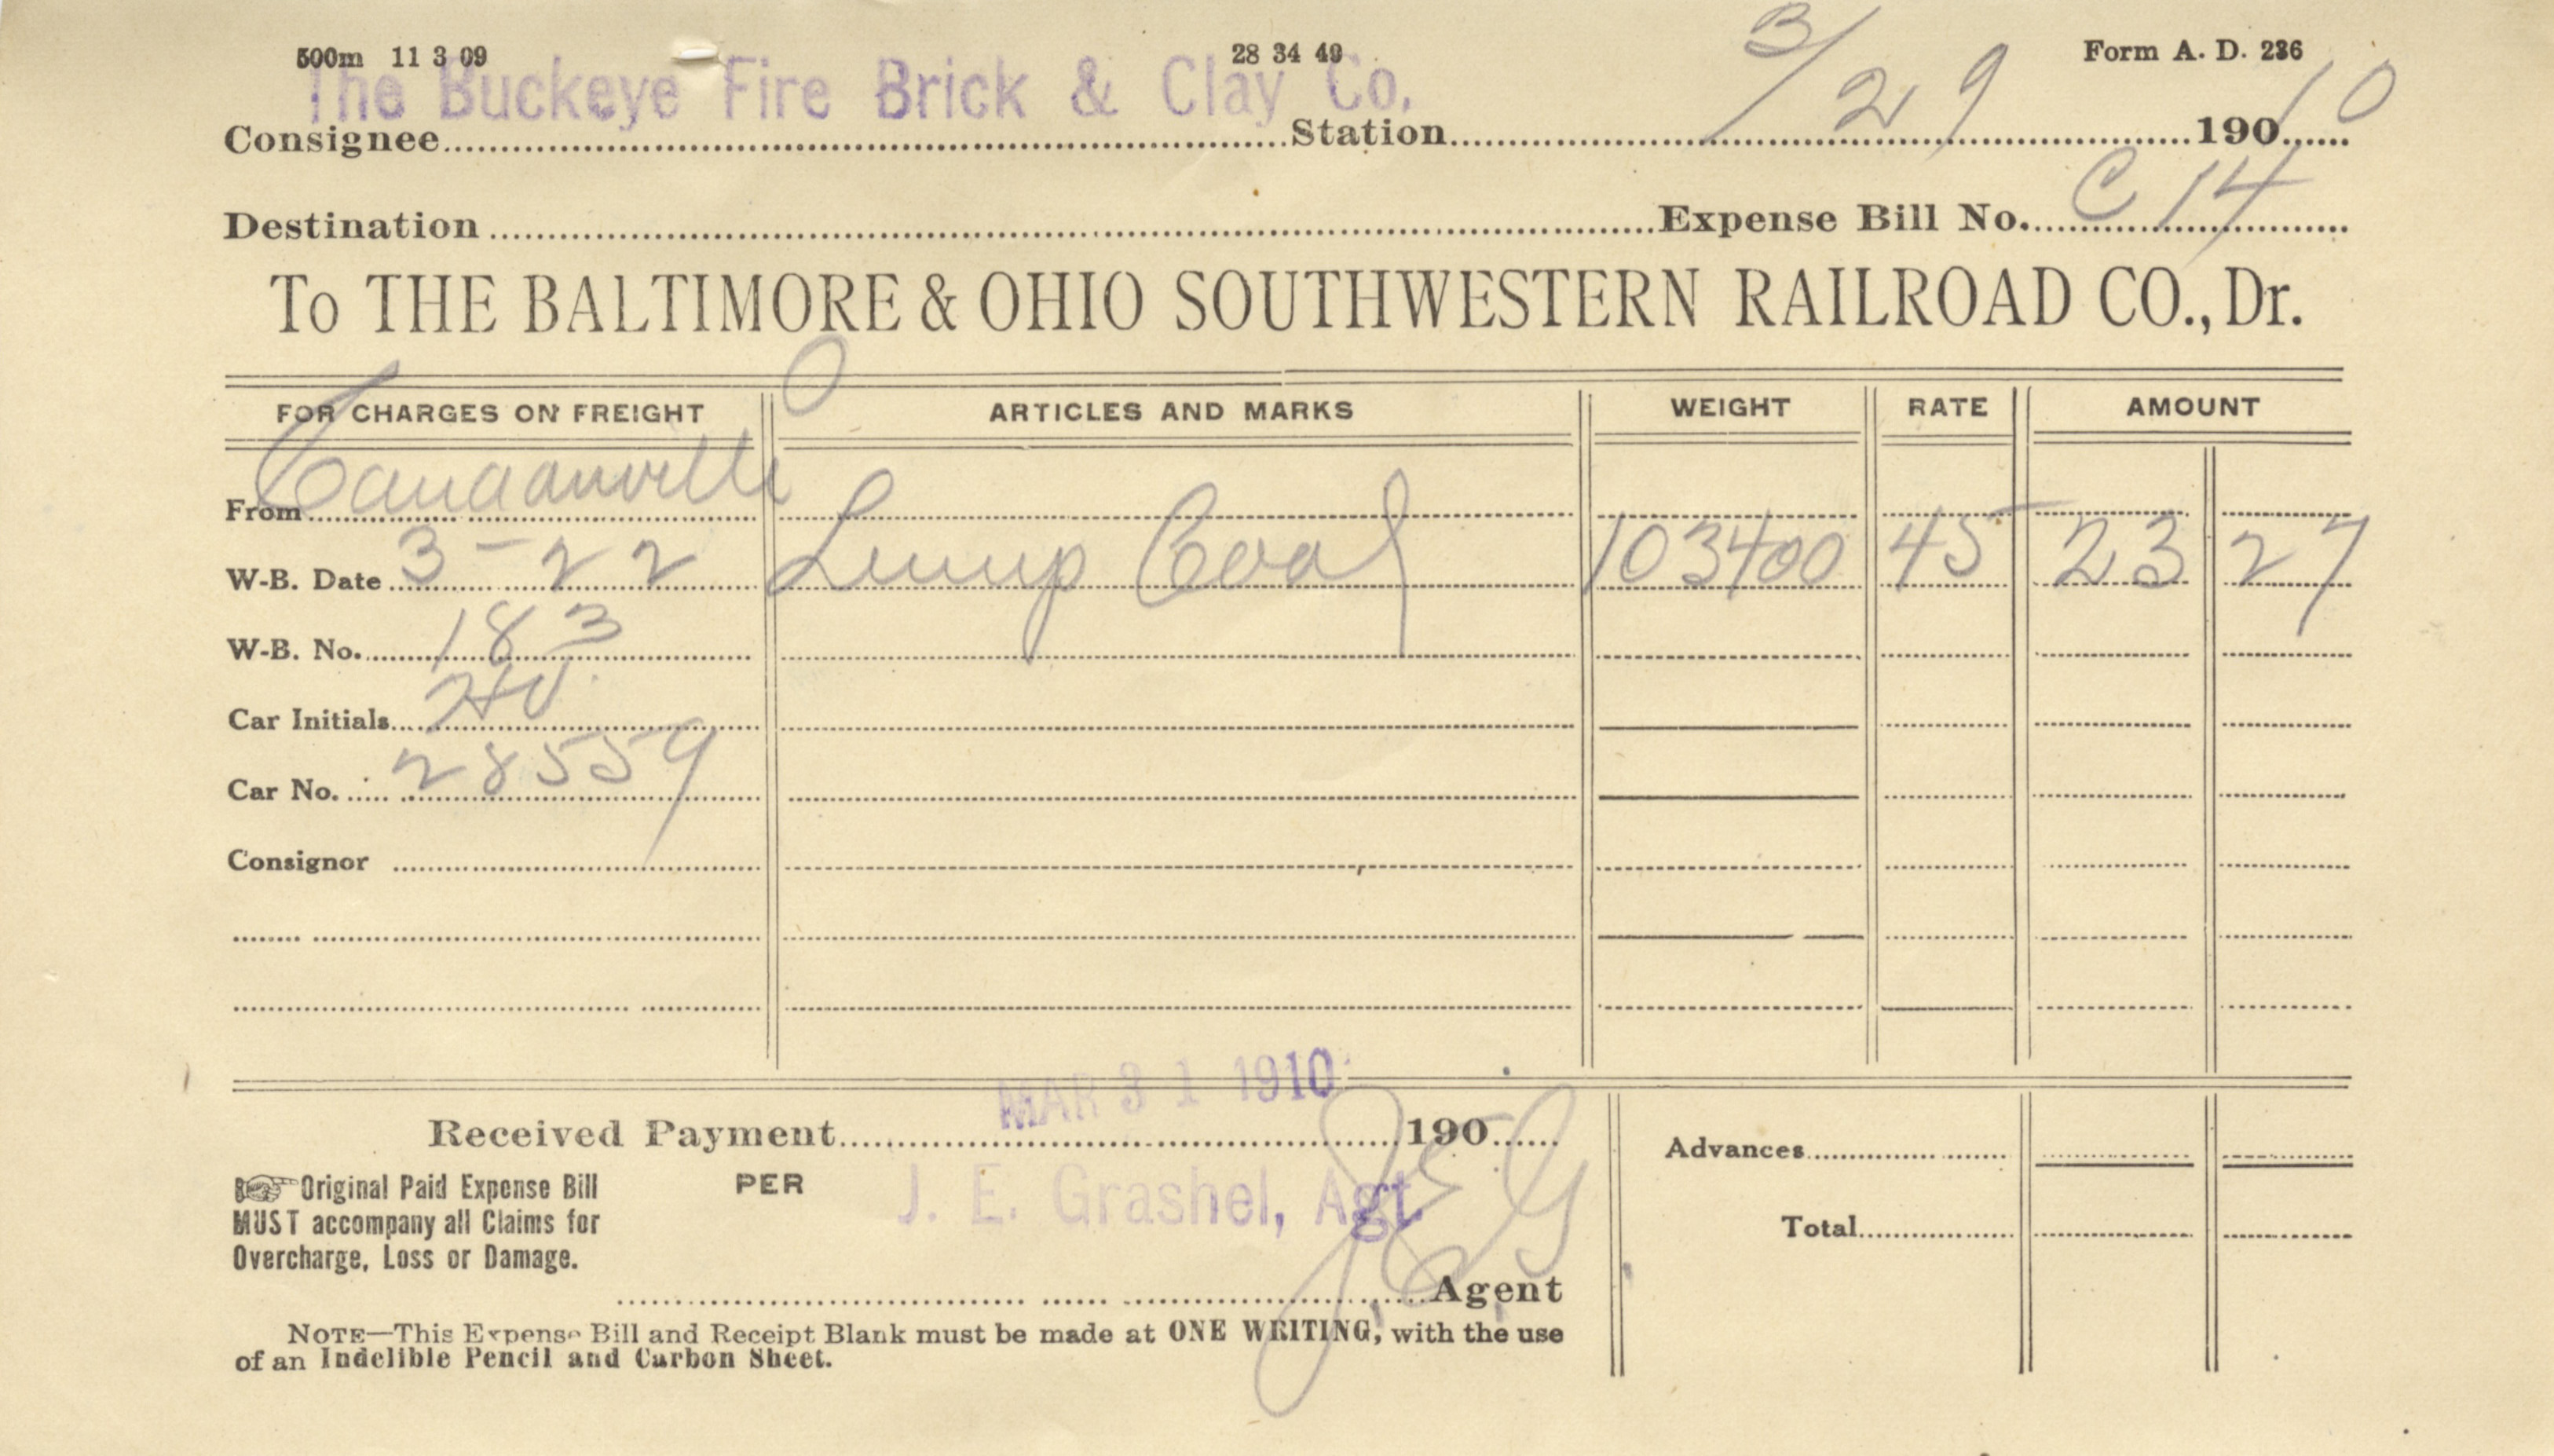 500m 11 3 09 28 34 49 Form A. D. 236
The Buckeye Fire Brick & Clay Co. 3/29 10
Consignee Station 190
Destination Expense Bill No. C 14
To THE BALTIMORE & OHIO SOUTHWESTERN RAILROAD CO., Dr.
FOR CHARGES ON FREIGHT ARTICLES AND MARKS WEIGHT RATE AMOUNT
From Canaanville
W-B. Date 3-22 Lump Coal 103400 45 23 27
W-B. No. 183
Car Initials HV
Car No. 28559
Consignor
MAR 31 1910
Received Payment 190
Original Paid Expense Bill PER J. E. Grashel, Agt. JEG
MUST accompany all Claims for
Overcharge, Loss or Damage.
Agent
Advances
Total
NOTE—This Expense Bill and Receipt Blank must be made at ONE WRITING, with the use
of an Indelible Pencil and Carbon Sheet.